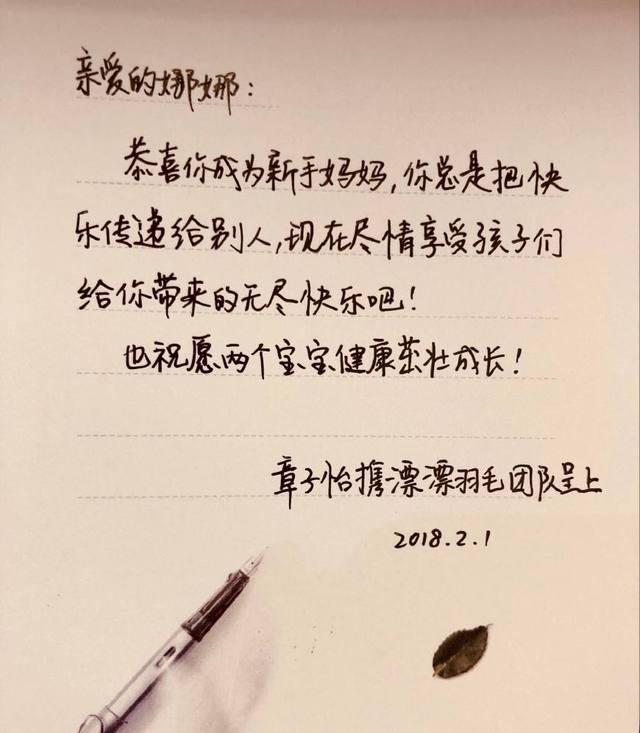 亲爱的娜娜:
恭喜你成为新手妈妈,你总是把快
乐传递给别人,现在尽情享受孩子们
给你带来的无尽快乐吧!
也祝愿两个宝宝健康茁壮成长!
章子怡携漂漂羽毛团队呈上
2018.2.1